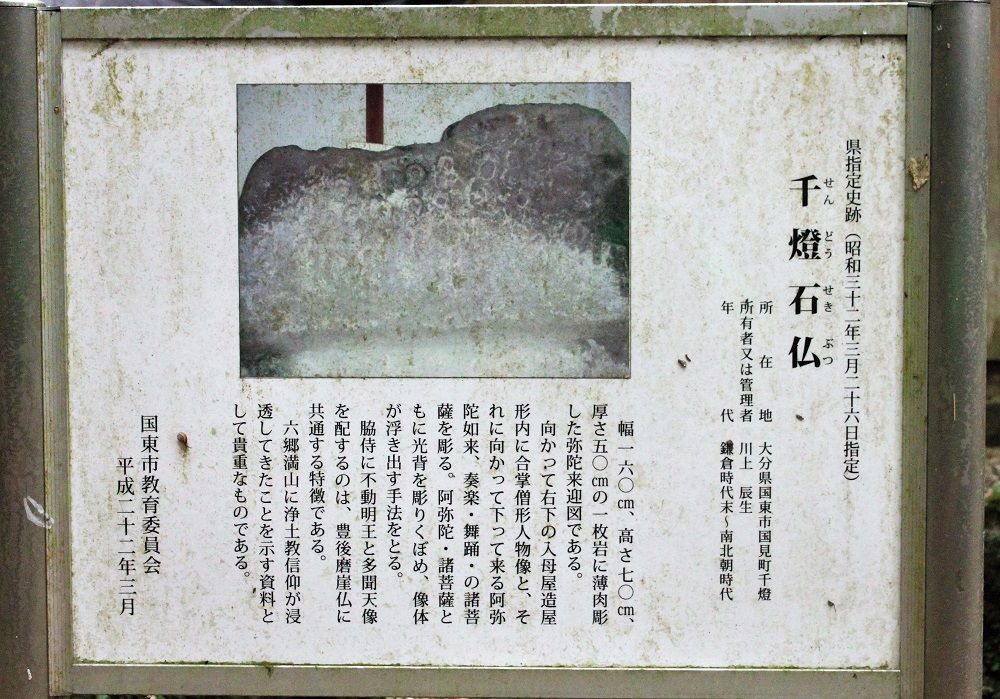 県指定史跡（昭和三十二年三月二十六日指定）
千燈石仏
せんどうせきぶつ
所在地　大分県国東市国見町千燈
所有者又は管理者　川上　辰生
年代　鎌倉時代末～南北朝時代
幅一六〇㎝、高さ七〇㎝、
厚さ五〇㎝の一枚岩に薄肉彫
した弥陀来迎図である。
向かって右下の入母屋造屋
形内に合掌僧形人物像と、そ
れに向かって下って来る阿弥
陀如来、奏楽・舞踊・の諸菩
薩を彫る。阿弥陀・諸菩薩と
もに光背を彫りくぼめ、像体
が浮き出す手法をとる。
脇侍に不動明王と多聞天像
を配するのは、豊後磨崖仏に
共通する特徴である。
六郷満山に浄土教信仰が浸
透してきたことを示す資料と
して貴重なものである。
国東市教育委員会
平成二十二年三月